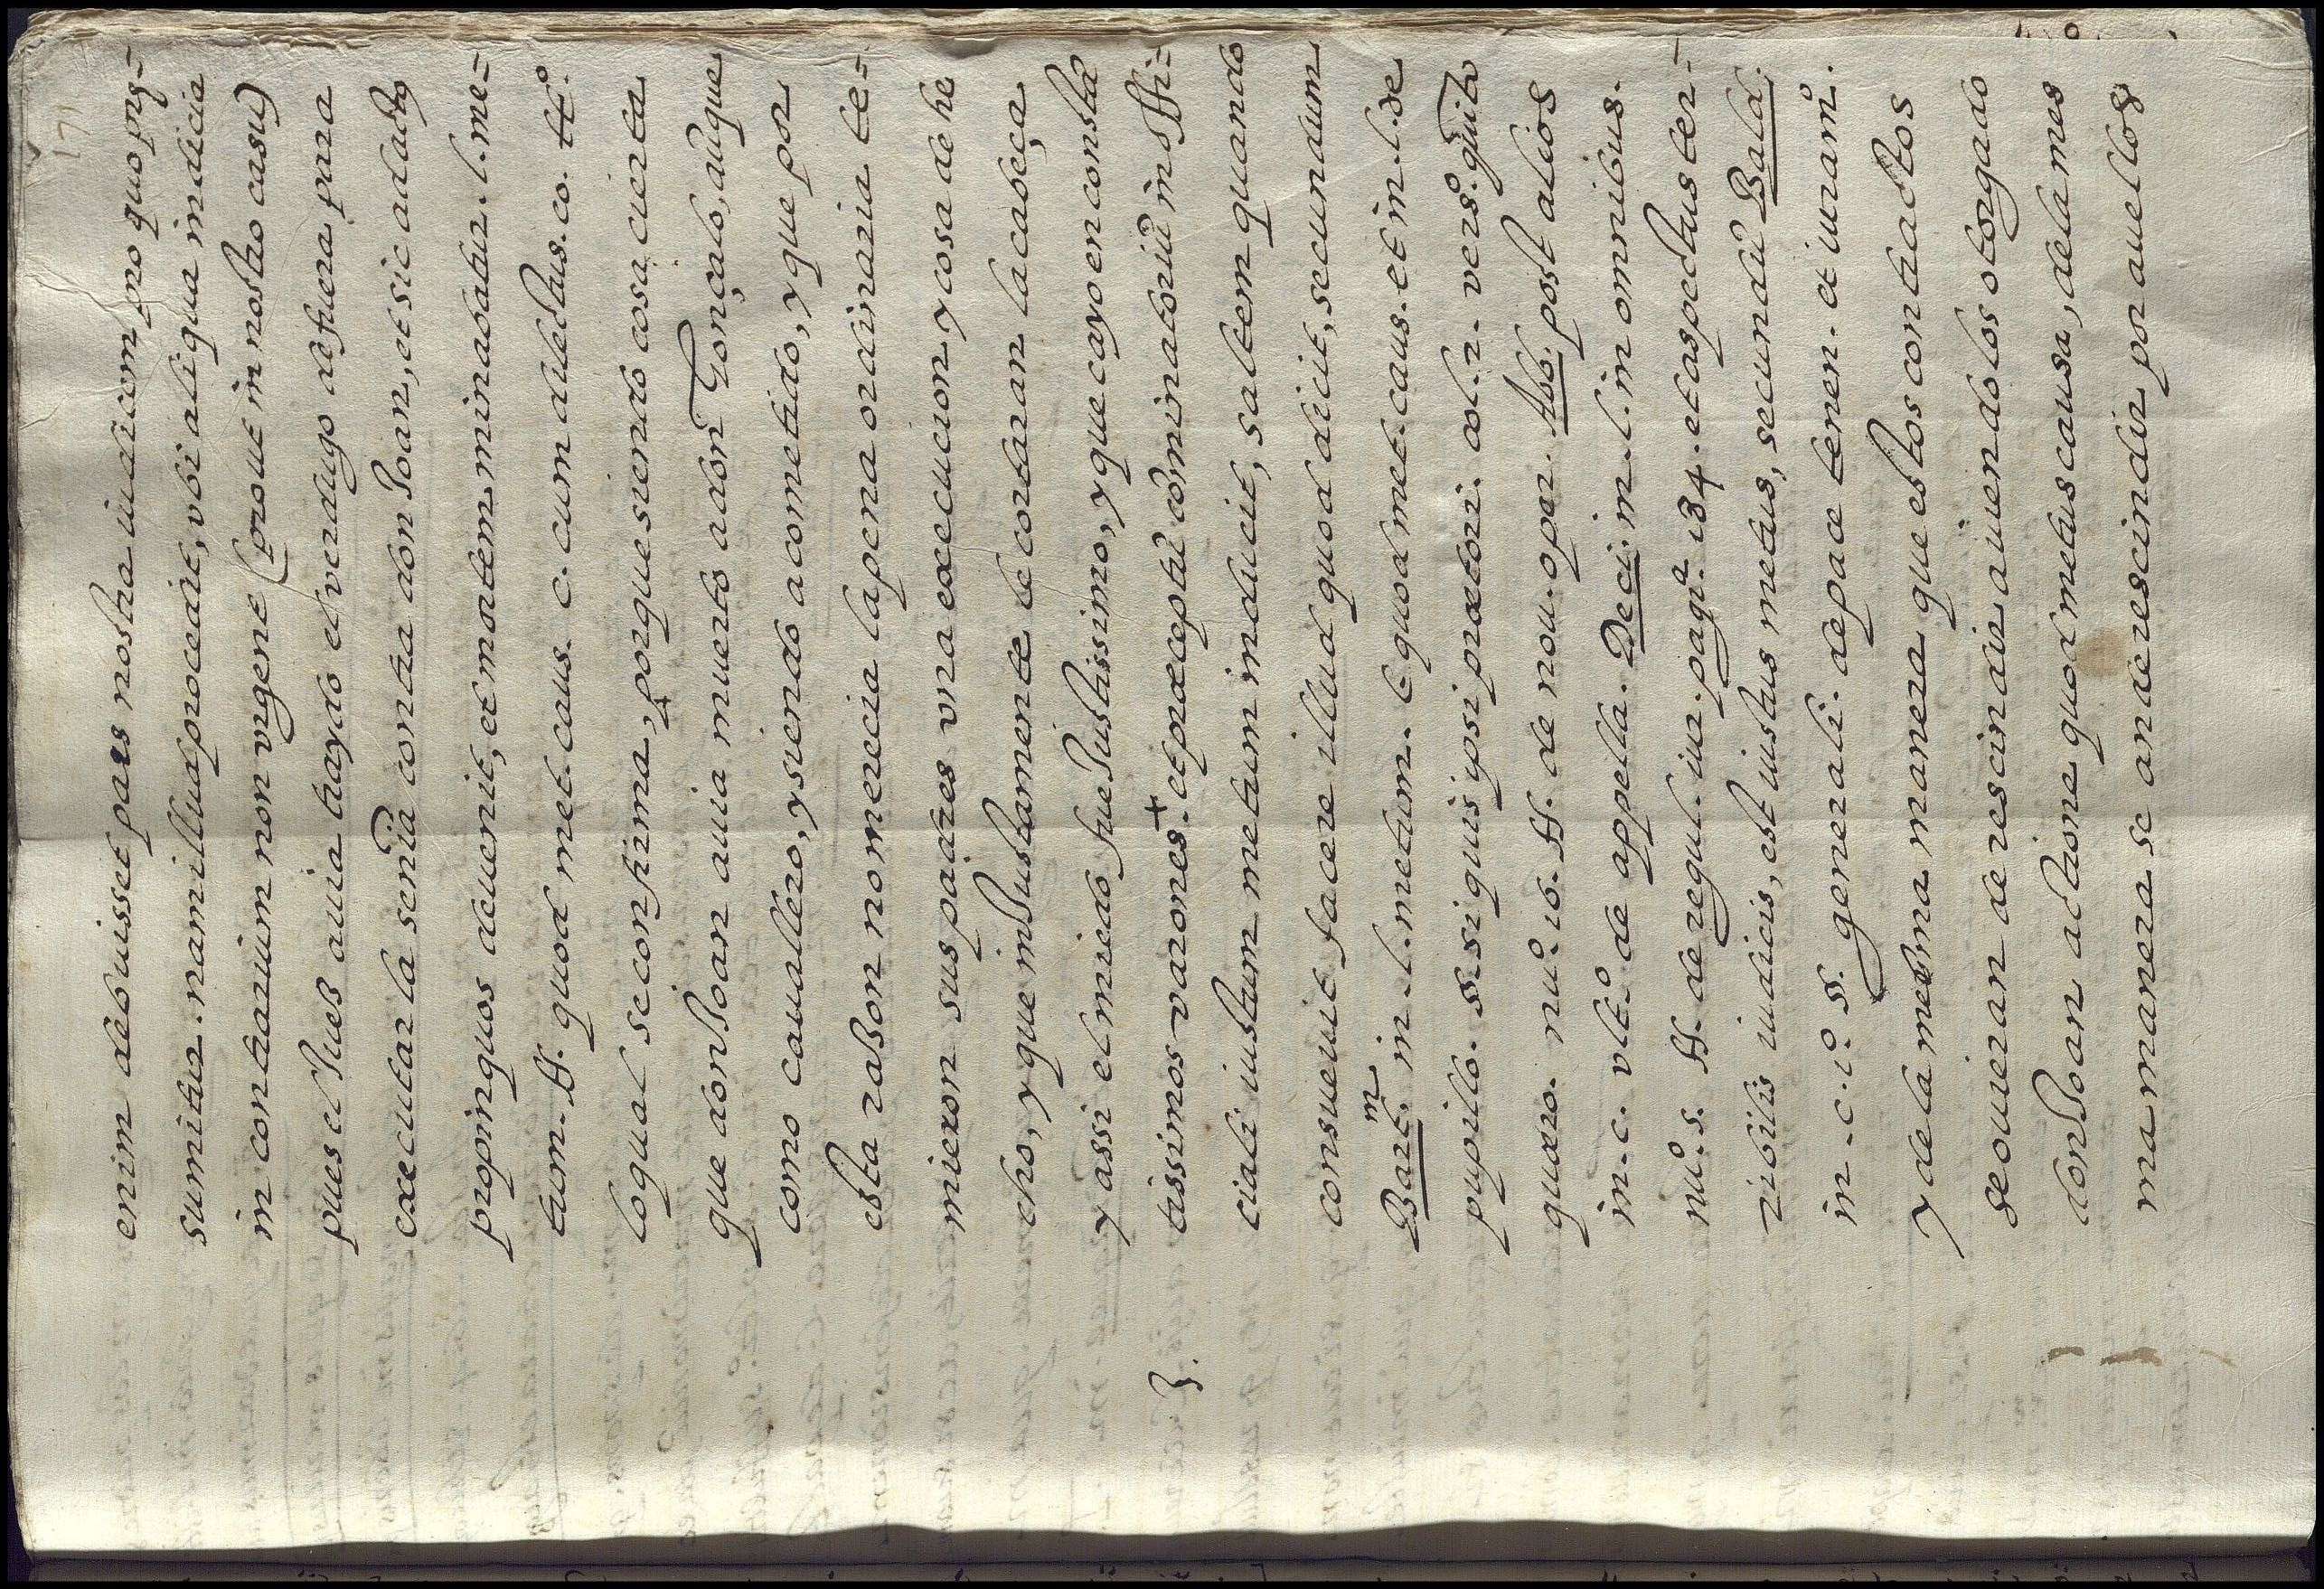 171
enim debuisset pars nostra iudicem pro quo pręsumitur. nam illud procedit, vbi aliqua indicia
in contrarium non vrgent (prout in nostro casu)
pues el Juez auia traydo el verdugo de fuera para
executar la senũia contra don Joan, et sic ad ado
propinquos deuenit, et mortem minabatur. l. me-
tum. ff. quod met. caus. c. cum dilectus. eo. ttº.
loqual se confirma, porque siendo cosa cierta
que don Joan auia muerto a don Gonçalo, aũque
como cauallero, y siendo acometido, y que por
esta razon no merecia la pena ordinaria te-
mieron sus padres vna execucion, y cosa de he
cho, y que injustamente le cortaran la cabeça
y assi el miedo fue Justissimo, y que cayo en constã
3. tissimos varones. + et præceptũ cõminatoriũ in offi-
ciali iustum metum inducit, saltem quando
consueuit facere illud quod dicit, secundum
Bart.m in. l. metum. C. quod met. caus. et in. l. de
pupillo. §. si quis ipsi prætori. col. 2. versº. quito
quæro. nuº. 10. ff. de nou. oper. Abb. post alios
in. c. vltº. de appella. Deci. in. l. in omnibus.
nuº. 5. ff. de regul. iur. pagª. 134. et aspectus ter-
ribilis iudicis, est iustus metus, secundũ Bald.
in. c. 1º. §. generali. de pace tenen. et iuramº.
y dela mesma manera que estos contractos
se ouieran de rescindir auiendolos otorgado
don Joan actione quod metus causa, dela mes
ma manera se an de rescindir por auellos